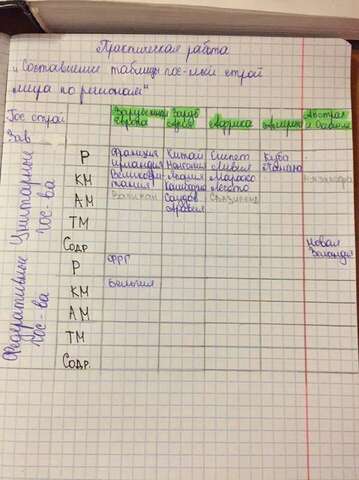 Практическая работа
„Составление таблицы гос-ный строй
мира по регионам"
Гос строй Зарубежная Европа Заруб Африка Америка Австрал и Океания
Зав
Унитарные гос-ва
Р Франция Китай Египет Куба
Ирландия Монголия Ливия Панама
КМ Великобри- Япония Марокко
тания Камбоджа Лесото
АМ Ватикан Саудов Свазиленд
Аравия
ТМ
Содр. Новая Зеландия
Федеративные гос-ва
Р ФРГ
КМ Бельгия
АМ
ТМ
Содр.